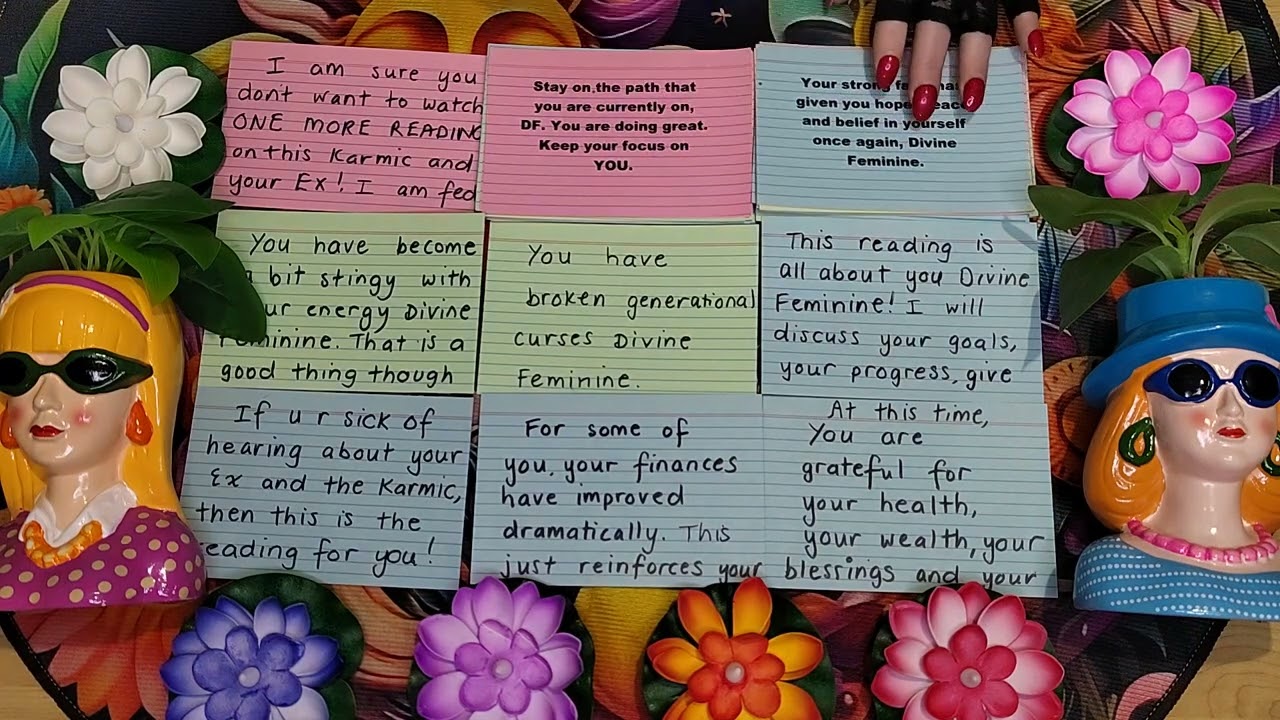 I am sure you
don't want to watch
ONE MORE READING
on this Karmic and
your Ex! I am fed
Stay on,the path that
you are currently on,
DF. You are doing great.
Keep your focus on
YOU.
Your strong
given you hope
and belief in yourself
once again, Divine
Feminine.
You have become
bit stingy with
energy Divine
Feminine. That is a
good thing though
You have
broken generational
curses Divine
Feminine.
This reading is
all about you Divine
Feminine! I will
discuss your goals,
your progress, give
If u r sick of
hearing about your
Ex and the Karmic,
then this is the
reading for you!
For some of
you, your finances
have improved
dramatically. This
just reinforces your blessings and your
At this time,
You are
grateful for
your health,
your wealth, your